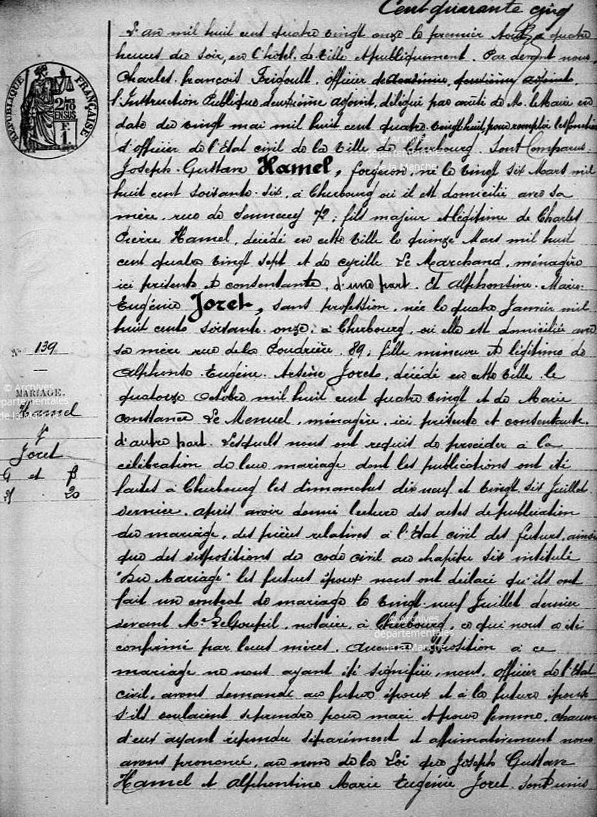 Cent quarante cinq
L'an mil huit cent quatre vingt onze le premier Août à quatre
heures du soir, en l'hôtel de Ville & publiquement. Par devant nous
Charles François Frigoult, officier
l'Instruction Publique deuxième adjoint, délégué par arrêté de M. le Maire en
date du vingt mai mil huit cent quatre vingt huit, pour remplir les fonctions
d'officier de l'Etat civil de la Ville de Cherbourg. Sont comparus
Joseph Gustave Hamel, forgeron, né le vingt six Mars mil
huit cent soixante six, à Cherbourg où il est domicilié avec sa
mère, rue de Sennecey 72; fils majeur & légitime de Charles
Pierre Hamel, décédé en cette Ville le quinze Mars mil huit
cent quatre vingt sept et de Cyrille Le Marchand, ménagère
ici présente et consentante, d'une part. Et Alphontine Marie
Eugénie Joret, sans profession, née le quatre Janvier mil
huit cent soixante onze, à Cherbourg, où elle est domiciliée avec
sa mère rue de la Poudrière, 89, fille mineure et légitime de
Alphonse Eugène Arsène Joret, décédé en cette Ville le
quatorze Octobre mil huit cent quatre vingt et de Marie
Constance Le Menuel, ménagère, ici présente et consentante
d'autre part. Lesquels nous ont requis de procéder à la
célébration de leur mariage dont les publications ont été
faites à Cherbourg les dimanches dix neuf et vingt six Juillet
dernier. Après avoir donné lecture des actes de publication
du mariage, des pièces relatives à l'Etat civil des futurs, ainsi
que des dispositions du code civil au chapitre six intitulé
"Du Mariage" les futurs époux nous ont déclaré qu'ils ont
fait un contrat de mariage le vingt-neuf Juillet dernier
devant Me Letourpil, notaire à Cherbourg, ce qui nous a été
confirmé par leurs mères. Aucune opposition à ce
mariage ne nous ayant été signifiée, nous, officier de l'Etat
civil, avons demandé au futur époux et à la future épouse
s'ils voulaient se prendre pour mari & pour femme, chacun
d'eux ayant répondu séparément et affirmativement nous
avons prononcé, au nom de la Loi que Joseph Gustave
Hamel et Alphontine Marie Eugénie Joret, sont unis
RÉPUBLIQUE FRANÇAISE
N° 139
MARIAGE.
Hamel
&
Joret
G et F
20
© Archives
départementales
de la Manche